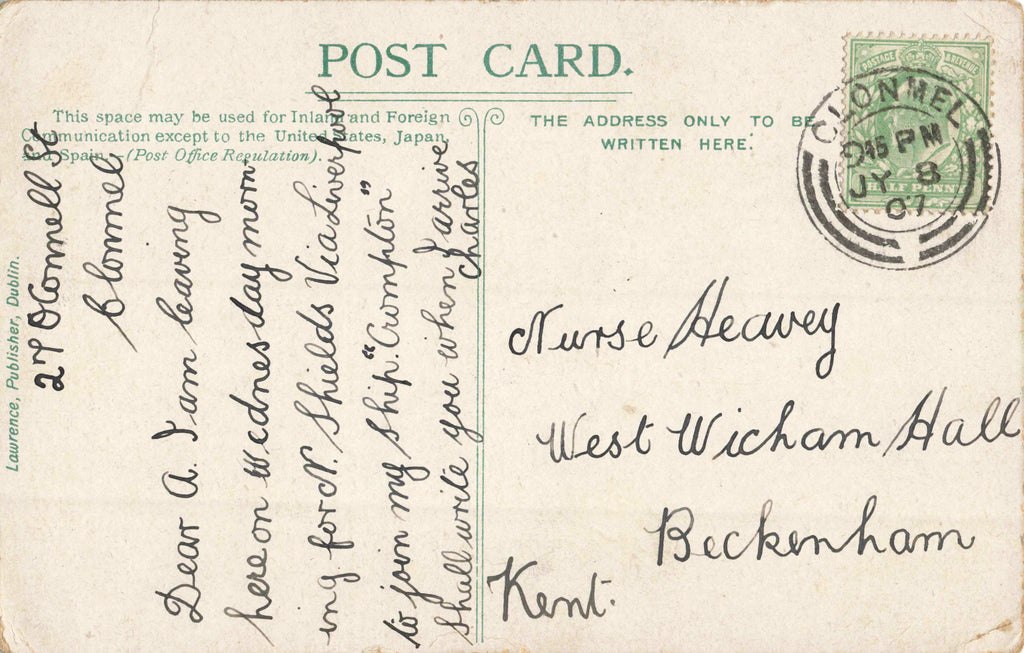 POST CARD.
This space may be used for Inland and Foreign
Communication except to the United States, Japan,
and Spain. (Post Office Regulation).
THE ADDRESS ONLY TO BE
WRITTEN HERE.
POSTAGE & REVENUE
HALF PENNY
CLONMEL
9 45 PM
JY 8
07
Lawrence, Publisher, Dublin.
27 OConnell St
Clonmel
Dear A. I am leaving
here on Wednesday morn-
ing for N. Shields Via Liverpool
to join my ship. "Crompton"
Shall write you when I arrive
Charles
Nurse Heavey
West Wicham Hall
Beckenham
Kent.